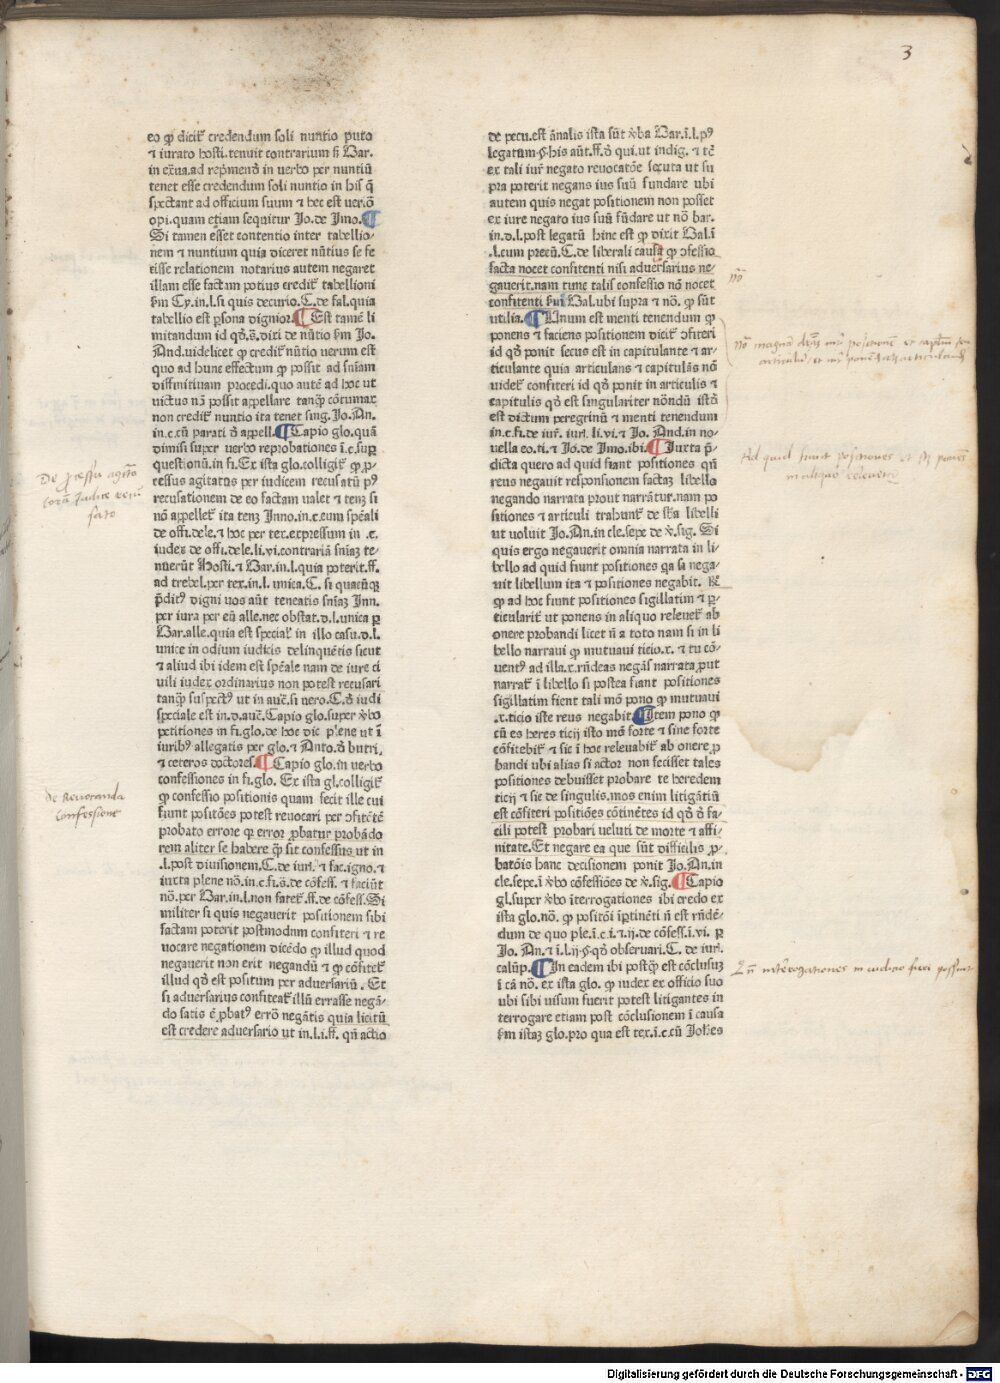 3
eo ꝙ dicit᷑ credendum soli nuntio puto
⁊ iurato hosti. tenuit contrarium s̄ Bar.
in exua. ad rep̄mend̄ in verbo per nuntiū
tenet esse credendum soli nuntio in his q̄
spectant ad officium suum ⁊ hec est uer. ō
opi. quam etiam sequitur Jo. de Jmo. ¶
Si tamen esset contentio inter tabellio-
nem ⁊ nuntium quia diceret nūtius se fe
cisse relationem notarius autem negaret
illam esse factam potius credit᷑ tabellioni
ẜm Cy. in. l. si quis decurio. C. de fal. quia
tabellio est ꝑsona dignior. ¶ Est tamē li
mitandum id qd̄. s̄. dixi de nūtio ẜm Jo.
And. uidelicet ꝙ credit᷑ nūtio uerum est
quo ad hunc effectum ꝙ possit ad sniam
diffinitiuam procedi. quo autē ad hoc ut
uictus nō possit appellare tanq̄ cōtumax
non credit᷑ nuntio ita tenet sing. Jo. An.
in. c. cū parati d̄ appell. ¶ Capio glo. quā
dimisi super verbo reprobationes ī. c. sup
questionū. in fi. Ex ista glo. colligit᷑ ꝙ ꝓ-
cessus agitatus per iudicem recusatū pꝰ
recusationem de eo factam ualet ⁊ tenz si
nō appellet᷑ ita tenz Inno. in. c. eum spēali
de offi. dele. ⁊ hoc per tex. expressum in. c.
iudex de offi. dele. li. vi. contrariā sniaz te-
nuerūt Hosti. ⁊ Bar. in. l. quia poterit. ff.
ad trebel. per tex. in. l. unica. C. si quacūqꝫ
p̄ditꝰ digni uos aūt teneatis sniaz Inn.
per iura per eū alle. nec obstat. d. l. unica ꝑ
Bar. alle. quia est special᷑ in illo casu. d. l.
unice in odium iudicis delinquētis sicut
⁊ aliud ibi idem est spēale nam de iure ci
uili iudex ordinarius non potest recusari
tanq̄ suspectꝰ ut in auc̄. si uero. C. d̄ iudi
speciale est in. d. auc̄. Capio glo. super v̄bo
petitiones in fi. glo. de hoc dic plene ut ī
iuribꝰ allegatis per glo. ⁊ Anto. d̄ butri.
⁊ ceteros doctores. ¶ Capio glo. in verbo
confessiones in fi. glo. Ex ista gl. colligit᷑
ꝙ confessio positionis quam fecit ille cui
fiunt positōes potest reuocari per ↄfitētē
probato errore ꝙ error ꝓbatur probādo
rem aliter se habere q̄ sit confessus ut in
. l. post diuisionem. C. de iur. ⁊ fac. igno. ⁊
iuxta plene nō. in. c. fi. d̄. de cōfess. ⁊ faciūt
nō. per Bar. in. l. non fatet᷑. ff. de cōfess. Si
militer si quis negauerit positionem sibi
factam poterit postmodum confiteri ⁊ re
uocare negationem dicēdo ꝙ illud quod
negauerit non erit negandū ⁊ ꝙ cōfitet᷑
illud qd̄ est positum per aduersariū. Et
si aduersarius confiteat᷑ illū errasse negā-
do satis ē ꝓbatꝰ errō negātis quia licitū
est credere aduersario ut in. l. i. ff. qn̄ actio
de pecu. est ānalis ista sūt v̄ba Bar. ī. l. pꝰ
legatum. §. his aūt. ff. d̄ qui. ut indig. ⁊ tē
ex tali iur̄ negato reuocatōe secuta ut su
pra poterit negans ius suū fundare ubi
autem quis negat positionem non posset
ex iure negato ius suū fūdare ut nō bar.
in. d. l. post legatū hinc est ꝙ dixit Bal. ī
. l. cum precū. C. de liberali causa ꝙ ↄfessio
facta nocet confitenti nisi aduersarius ne-
gauerit. nam tunc talis confessio nō nocet
confitenti ẜm Bal. ubi supra ⁊ nō. ꝙ sūt
utilia. ¶ Unum est menti tenendum ꝙ
ponens ⁊ faciens positionem dicit᷑ ↄfiteri
id qd̄ ponit secus est in capitulante ⁊ ar-
ticulante quia articulans ⁊ capitulās nō
uidet᷑ confiteri id qd̄ ponit in articulis ⁊
capitulis qd̄ est singulariter nōndū istd̄
est dictum peregrinū ⁊ menti tenendum
in. c. fi. de iur̄. iur̄. li. vi. ⁊ Jo. And. in no-
uella eo. ti. ⁊ Jo. de Imo. ibi. ¶ Iuxta p̄-
dicta quero ad quid fiant positiones qn̄
reus negauit responsionem factaz libello
negando narrata prout narrātur. nam po
sitiones ⁊ articuli trahunt᷑ de sb̄a libelli
ut uoluit Jo. An. in cle. sepe de v̄. sig. Si
quis ergo negauerit omnia narrata in li-
bello ad quid fiunt positiones qa si nega-
uit libellum ita ⁊ positiones negabit. R̄
ꝙ ad hoc fiunt positiones sigillatim ⁊ ꝑ-
ticularit᷑ ut ponens in aliquo releuet᷑ ab
onere probandi licet n̄ a toto nam si in li
bello narraui ꝙ mutuaui ticio. x. ⁊ tu cō-
uentꝰ ad illa. x. rn̄deas negās narrata ꝓut
narrat᷑ ī libello si postea fiant positiones
sigillatim fient tali mō pono ꝙ mutuaui
. x. ticio iste reus negabit. ¶ Item pono ꝙ
cū es heres ticij isto mō forte ⁊ sine forte
cōfitebit᷑ ⁊ sic ī hoc releuabit᷑ ab onere ꝓ
bandi ubi alias si actor non fecisset tales
positiones debuisset probare te heredem
ticij ⁊ sic de singulis. mos enim litigātiū
est cōfiteri positiōes cōtinētes id qd̄ d̄ fa-
cili potest probari ueluti de morte ⁊ affi-
nitate. Et negare ea que sūt difficilis ꝓ-
batōis hanc decisionem ponit Jo. An. in
cle. sepe. ī v̄bo cōfessiōes de v̄. sig. ¶ Capio
gl. super v̄bo īterrogationes ibi credo ex
ista glo. nō. ꝙ positōi īꝑtinēti n̄ est rn̄dē-
dum de quo ple. ī. c. i. ⁊. ij. de cōfess. ī. vi. ꝑ
Jo. An. ⁊ ī. l. ij. §. qd̄ obseruari. C. de iur.
calūp. ¶ In eadem ibi postq̄ est cōclusuz
ī cā nō. ex ista glo. ꝙ iudex ex officio suo
ubi sibi uisum fuerit potest litigantes in
terrogare etiam post cōclusionem ī causa
ẜm istaz glo. pro qua est tex. ī. c. cū Johēs
De ꝓcessu agitato
corā Judice recu
sato
De Reuocanda
Confessione
nō
Ad quid fiunt positiones
Qn̄ interrogationes in iudicio fieri possunt
Digitalisierung gefördert durch die Deutsche Forschungsgemeinschaft - DFG